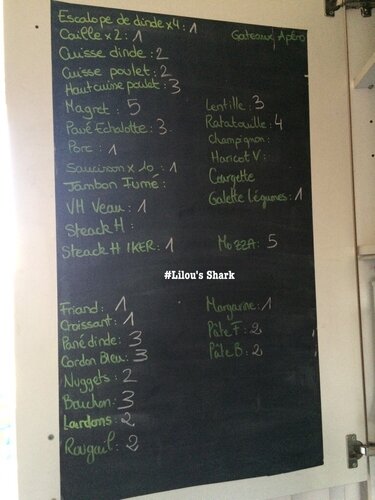 Escalope de dinde x4 : 1
Caille x 2 : 1
Cuisse dinde : 2
Cuisse poulet : 2
Haut cuisse poulet : 3
Magret : 5
Pavé Echalotte : 3
Porc : 1
Saucisson x 10 : 1
Jambon Fumé :
VH Veau : 1
Steack H :
Steack H IKER : 1
Gateaux Apéro
Lentille : 3
Ratatouille : 4
Champignon :
Haricot V :
Courgette
Galette Légumes : 1
Mozza : 5
#Lilou's Shark
Friand : 1
Croissant : 1
Pané dinde : 3
Cordon Bleu : 3
Nuggets : 2
Bouchon : 3
Lardons : 2
Rougail : 2
Margarine : 1
Pâte F : 2
Pâte B : 2